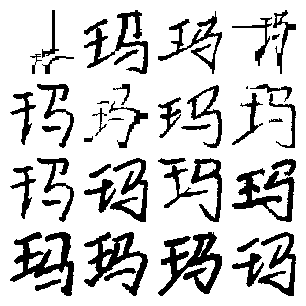 玛玛玛
玛玛玛玛
玛玛玛玛
玛玛玛玛